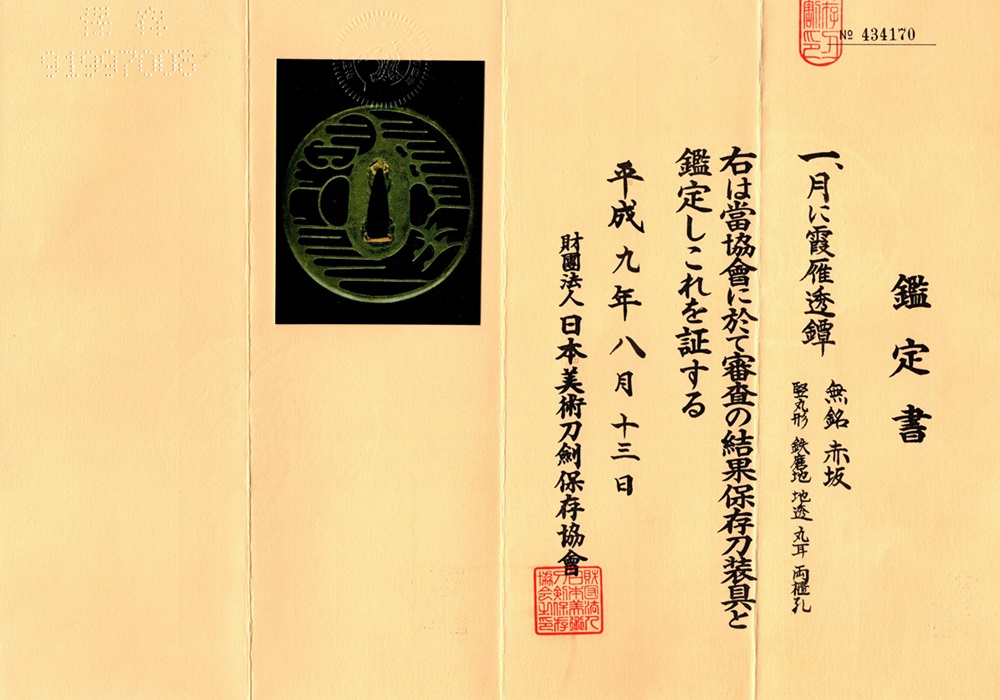 № 434170
鑑定書
一、月に霞雁透鐔
無銘 赤坂
竪丸形 鉄磨地 地透 丸耳 両櫃孔
右は當協會に於て審査の結果保存刀装具と
鑑定しこれを証する
平成九年八月十三日
財團法人 日本美術刀劍保存協會
保存
91997008